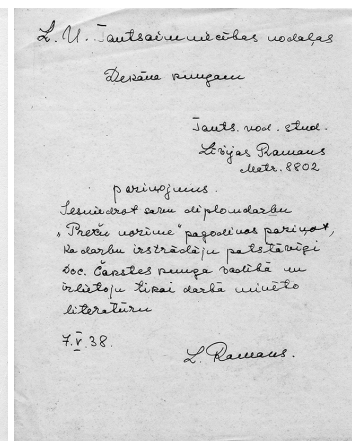 L. U. Tautsaimniecības nodaļas
Dekāna kungam
Tauts. nod. stud.
Livijas Ramans
Matr. 8802
paziņojums.
Iesniedzot savu diplomdarbu
„Preču nozīme" pagodinos paziņot,
ka darbu izstrādāju patstāvīgi
Doc. Čakstes kunga vadībā un
izlietoju tikai darbā minēto
literatūru
7.V.38.
L. Ramans.